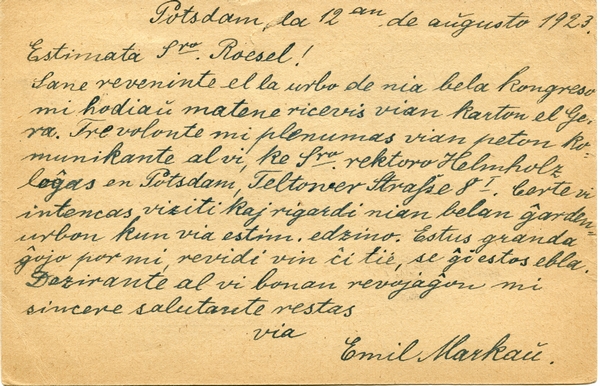 Potsdam, la 12an de aŭgusto 1923.
Estimata Sro. Roesel!
Sane reveninte el la urbo de nia bela kongreso
mi hodiaŭ matene ricevis vian karton el Ge-
ra. Tre volonte mi plenumas vian peton ko-
munikante al vi, ke Sro. rektoro Helmholz
loĝas en Potsdam, Teltower Straße 8I. Certe vi
intencas viziti kaj rigardi nian belan ĝarden-
urbon kun via estim. edzino. Estus granda
ĝojo por mi, revidi vin ĉi tie, se ĝi estos ebla.
Dezirante al vi bonan revojaĝon mi
sincere salutante restas
via
Emil Markaŭ.